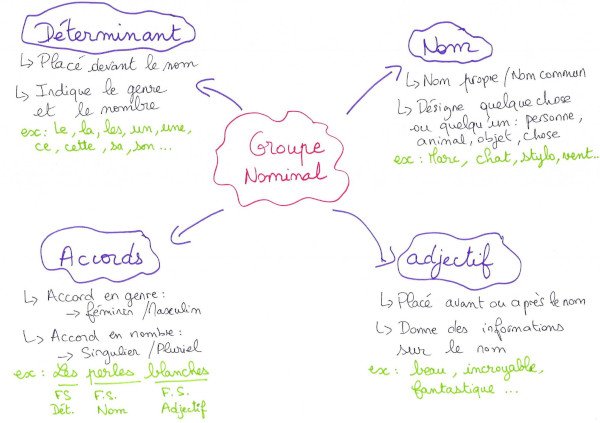 Déterminant
↳ Placé devant le nom
↳ Indique le genre
et le nombre
ex: Le, la, les, un, une,
ce, cette, sa, son...
Nom
↳ Nom propre / Nom commun
↳ Désigne quelque chose
ou quelqu'un : personne,
animal, objet, chose
ex : Marc, chat, stylo, vent...
Groupe
Nominal
Accords
↳ Accord en genre:
→ féminin / Masculin
↳ Accord en nombre:
→ Singulier / Pluriel
ex : Les perles blanches
FS F.S. F.S.
Dét. Nom Adjectif
adjectif
↳ Placé avant ou après le nom
↳ Donne des informations
sur le nom
ex: beau, incroyable,
fantastique ...